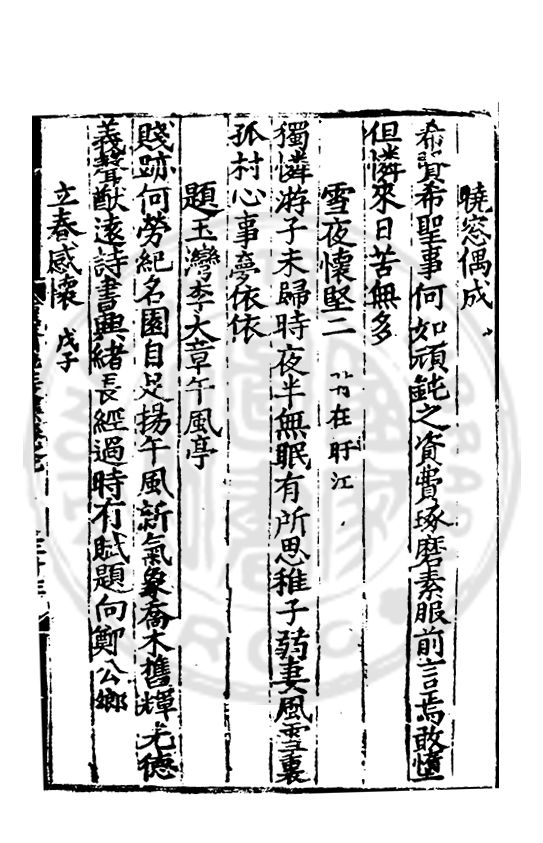 曉窓偶成
希賢希聖事何如頑鈍之資費琢磨素服前言焉敢墮
但憐來日苦無多
雪夜懷堅二 時在盱江
獨憐游子未歸時夜半無眠有所思稚子弱妻風雪裏
孤村心事夢依依
題玉灣李大章午風亭
賤跡何勞紀名園自足揚午風新氣象喬木舊輝光德
義聲猷遠詩書興緒長經過時有賦題向鄭公鄉
立春感懷 戊子